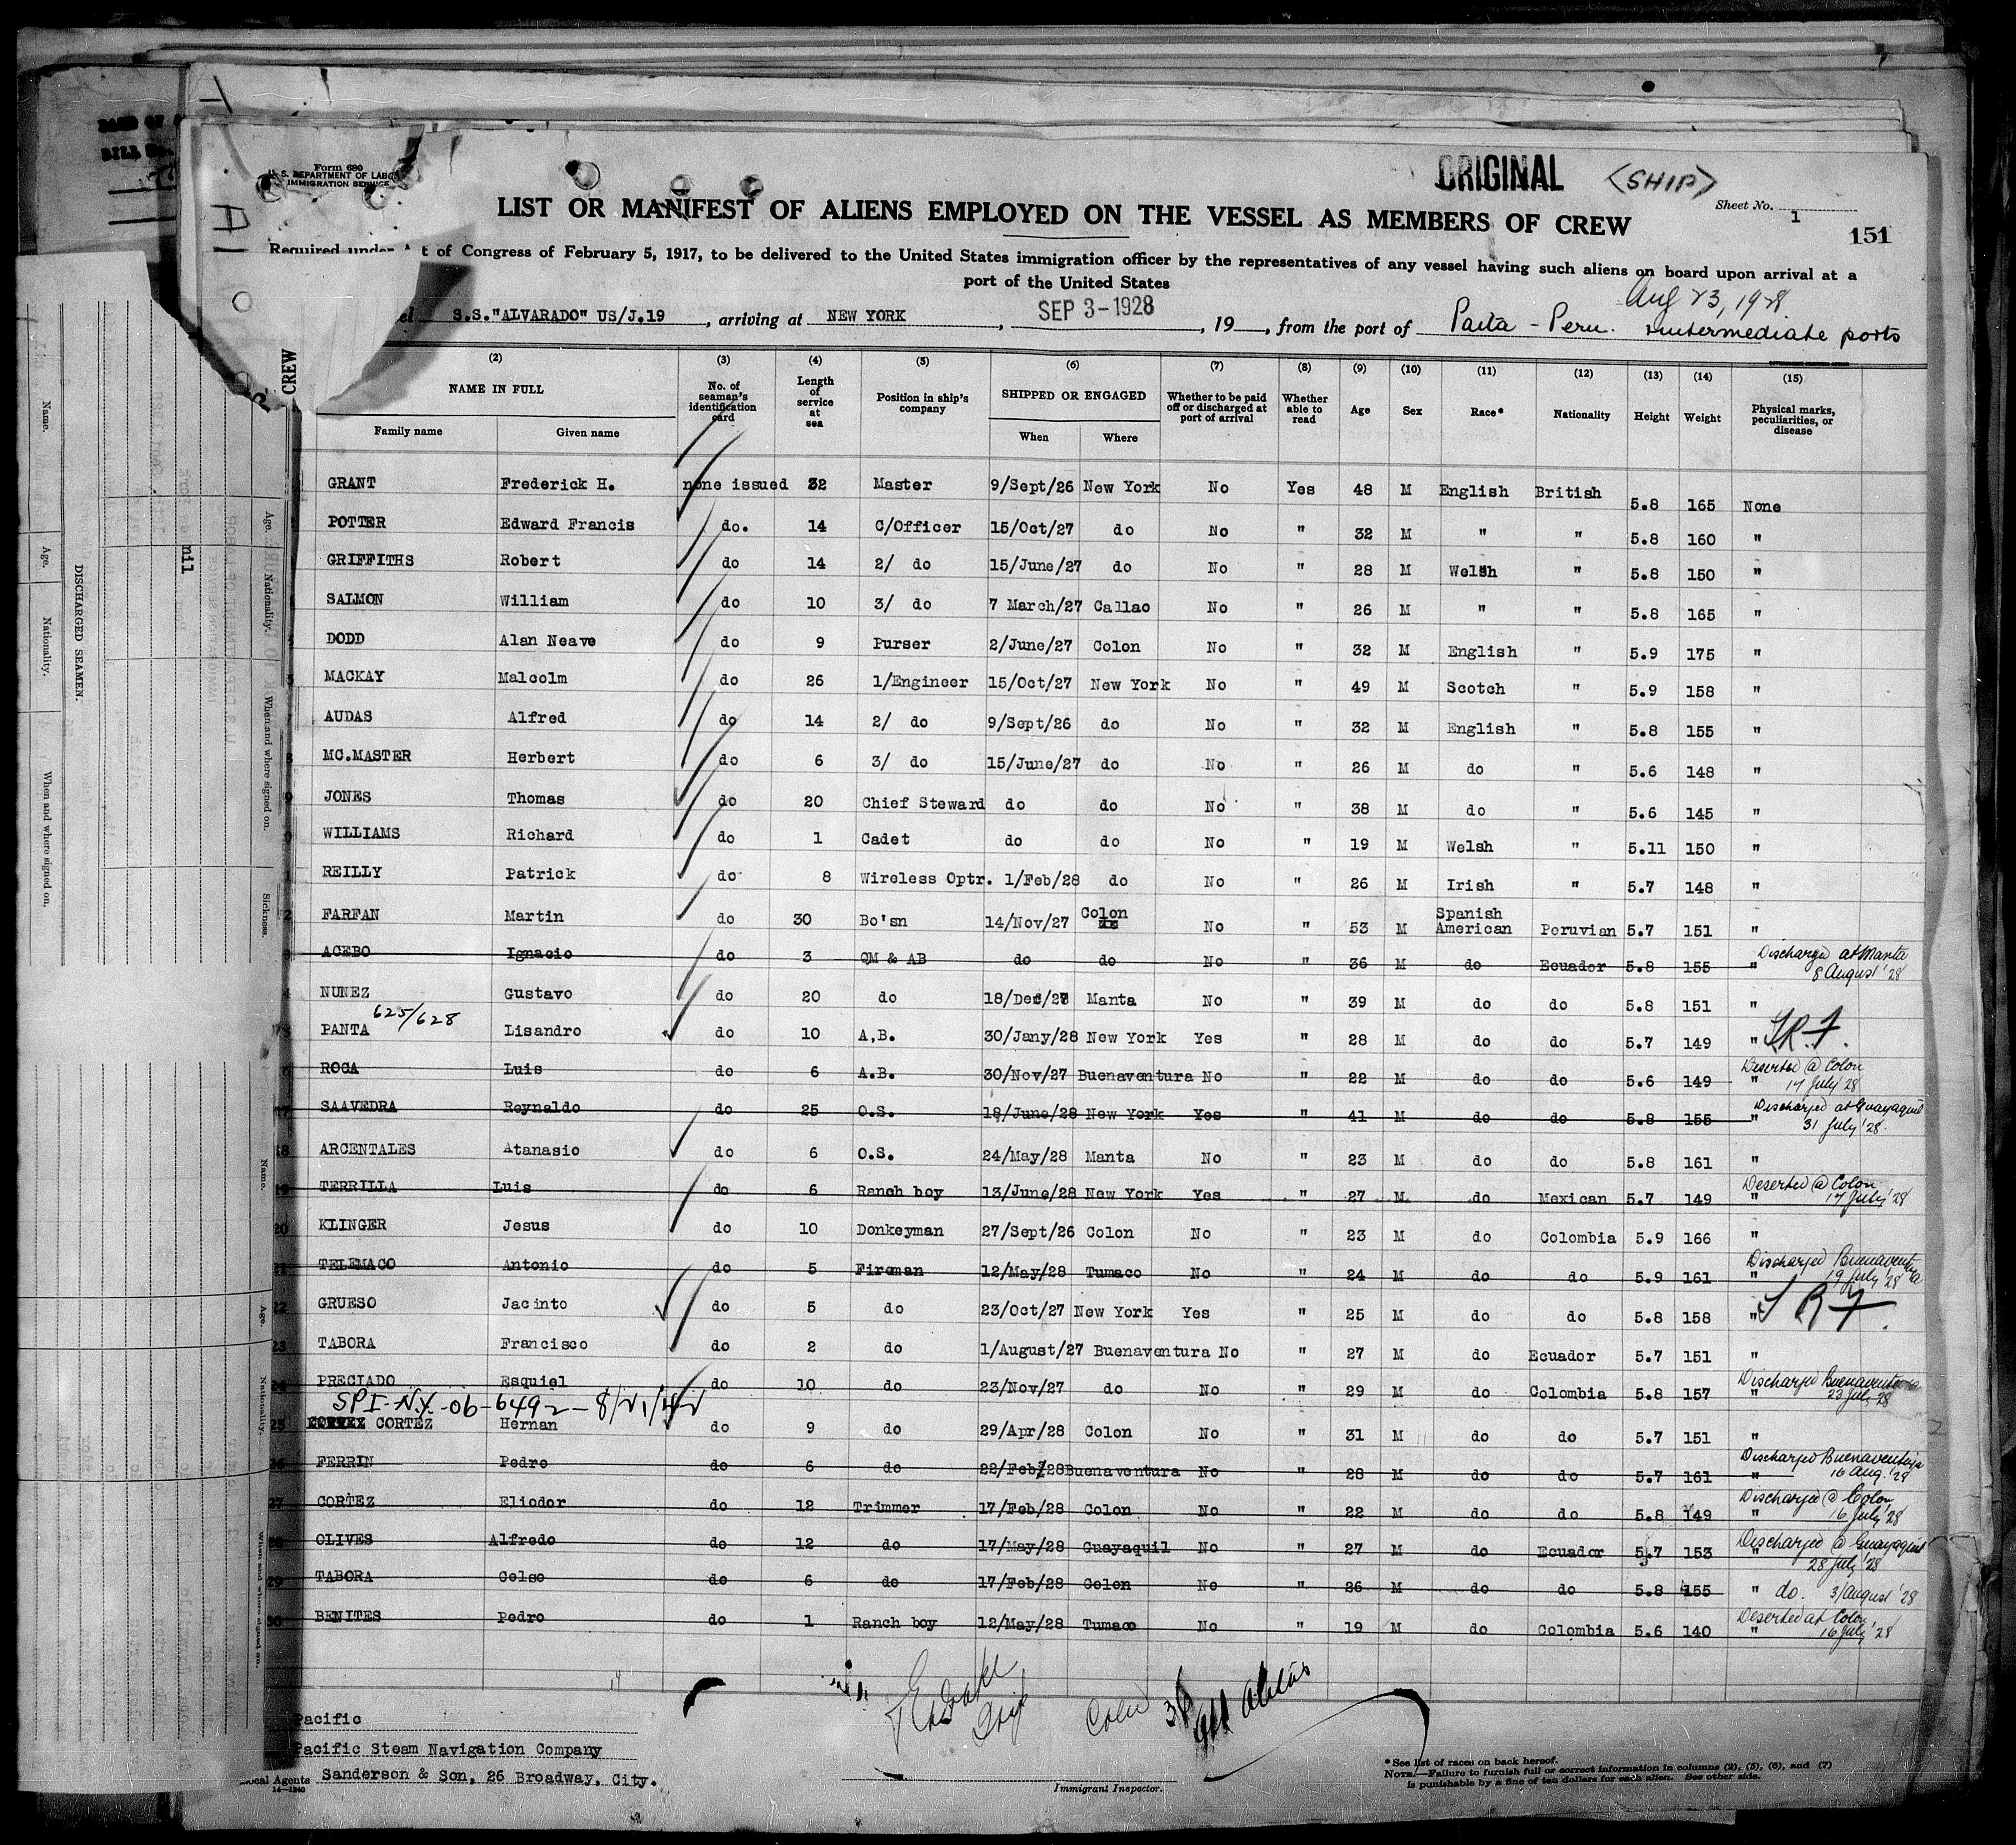 Form 680
U. S. DEPARTMENT OF LABOR
IMMIGRATION SERVICE
ORIGINAL
(SHIP)
Sheet No. 1
151
LIST OR MANIFEST OF ALIENS EMPLOYED ON THE VESSEL AS MEMBERS OF CREW
Required under Act of Congress of February 5, 1917, to be delivered to the United States immigration officer by the representatives of any vessel having such aliens on board upon arrival at a
port of the United States
Aug 23, 1928
S.S."ALVARADO" US/J.19, arriving at NEW YORK, SEP 3-1928, 19, from the port of Paita - Peru. intermediate ports
CREW
(2) (3) (4) (5) (6) (7) (8) (9) (10) (11) (12) (13) (14) (15)
NAME IN FULL No. of seaman's identification card Length of service at sea Position in ship's company SHIPPED OR ENGAGED Whether to be paid off or discharged at port of arrival Whether able to read Age Sex Race* Nationality Height Weight Physical marks, peculiarities, or disease
Family name Given name When Where
GRANT Frederick H. none issued 32 Master 9/Sept/26 New York No Yes 48 M English British 5.8 165 None
POTTER Edward Francis do. 14 C/Officer 15/Oct/27 do No " 32 M " " 5.8 160 "
GRIFFITHS Robert do 14 2/ do 15/June/27 do No " 28 M Welsh " 5.8 150 "
SALMON William do 10 3/ do 7 March/27 Callao No " 26 M " " 5.8 165 "
DODD Alan Neave do 9 Purser 2/June/27 Colon No " 32 M English " 5.9 175 "
MACKAY Malcolm do 26 1/Engineer 15/Oct/27 New York No " 49 M Scotch " 5.9 158 "
AUDAS Alfred do 14 2/ do 9/Sept/26 do No " 32 M English " 5.8 155 "
MC.MASTER Herbert do 6 3/ do 15/June/27 do No " 26 M do " 5.6 148 "
JONES Thomas do 20 Chief Steward do do No " 38 M do " 5.6 145 "
WILLIAMS Richard do 1 Cadet do do No " 19 M Welsh " 5.11 150 "
REILLY Patrick do 8 Wireless Optr. 1/Feb/28 do No " 26 M Irish " 5.7 148 "
FARFAN Martin do 30 Bo'sn 14/Nov/27 Colon No " 53 M Spanish American Peruvian 5.7 151 "
ACEBO Ignacio do 3 QM & AB do do No " 36 M do Ecuador 5.8 155 " Discharged at Manta 8 August '28
NUNEZ Gustavo do 20 do 18/Dec/27 Manta No " 39 M do do 5.8 151 "
625/628
PANTA Lisandro do 10 A.B. 30/Jany/28 New York Yes " 28 M do do 5.7 149 "
ROCA Luis do 6 A.B. 30/Nov/27 Buenaventura No " 22 M do do 5.6 149 " Deserted @ Colon 17 July '28
17 SAAVEDRA Reynaldo do 25 O.S. 18/June/28 New York Yes " 41 M do do 5.8 155 " Discharged at Guayaquil 31 July '28.
18 ARCENTALES Atanasio do 6 O.S. 24/May/28 Manta No " 23 M do do 5.8 161 "
19 TERRILLA Luis do 6 Ranch boy 13/June/28 New York Yes " 27 M do Mexican 5.7 149 " Deserted @ Colon 17 July '28
20 KLINGER Jesus do 10 Donkeyman 27/Sept/26 Colon No " 23 M do Colombia 5.9 166 "
21 TELEMACO Antonio do 5 Fireman 12/May/28 Tumaco No " 24 M do do 5.9 161 " Discharged Buenaventura 19 July '28
22 GRUESO Jacinto do 5 do 23/Oct/27 New York Yes " 25 M do do 5.8 158 "
23 TABORA Francisco do 2 do 1/August/27 Buenaventura No " 27 M do Ecuador 5.7 151 "
24 PRECIADO Esquiel do 10 do 23/Nov/27 do No " 29 M do Colombia 5.8 157 " Discharged Buenaventura 23 July 28
SPI-N.Y.-06-6492-8/21/42
25 CORTEZ Hernan do 9 do 29/Apr/28 Colon No " 31 M do do 5.7 151 "
26 FERRIN Pedro do 6 do 22/Feb/28 Buenaventura No " 28 M do do 5.7 161 " Discharged Buenaventura 16 Aug. '28
27 CORTEZ Eliodor do 12 Trimmer 17/Feb/28 Colon No " 22 M do do 5.8 149 " Discharged @ Colon 16 July '28
28 OLIVES Alfredo do 12 do 17/May/28 Guayaquil No " 27 M do Ecuador 5.7 153 " Discharged @ Guayaquil 28 July '28
29 TABORA Celso do 6 do 17/Feb/28 Colon No " 26 M do do 5.8 155 " do. 3/August '28
30 BENITES Pedro do 1 Ranch boy 12/May/28 Tumaco No " 19 M do Colombia 5.6 140 " Deserted at Colon 16 July '28
Pacific
Pacific Steam Navigation Company
Local Agents Sanderson & Son, 26 Broadway, City.
14-1240
Immigrant Inspector.
*See list of races on back hereof.
NOTE.—Failure to furnish full or correct information in columns (2), (5), (6), and (7)
is punishable by a fine of ten dollars for each alien. See other side.
DISCHARGED SEAMEN.
Name. Age. Nationality. When and where signed on.
nil
Age. Nationality. When and where signed on. Sickness.
Name. Age. Nationality. When and where signed on.